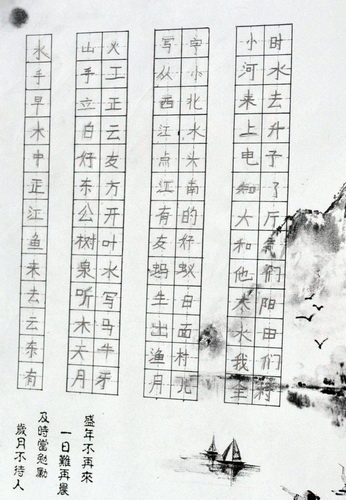 时水去升予了斤们阳田们村
小河来上电知大和他太水我全
字小北水头南的好蚁日面村
写从西江点江有友蚂生出渔月
火工正云友方开叶水写马牛牙
山手立白好东公树泉听木天月
水手早木中正江鱼来去云东有
盛年不再來
一日難再晨
及時當勉勵
歲月不待人